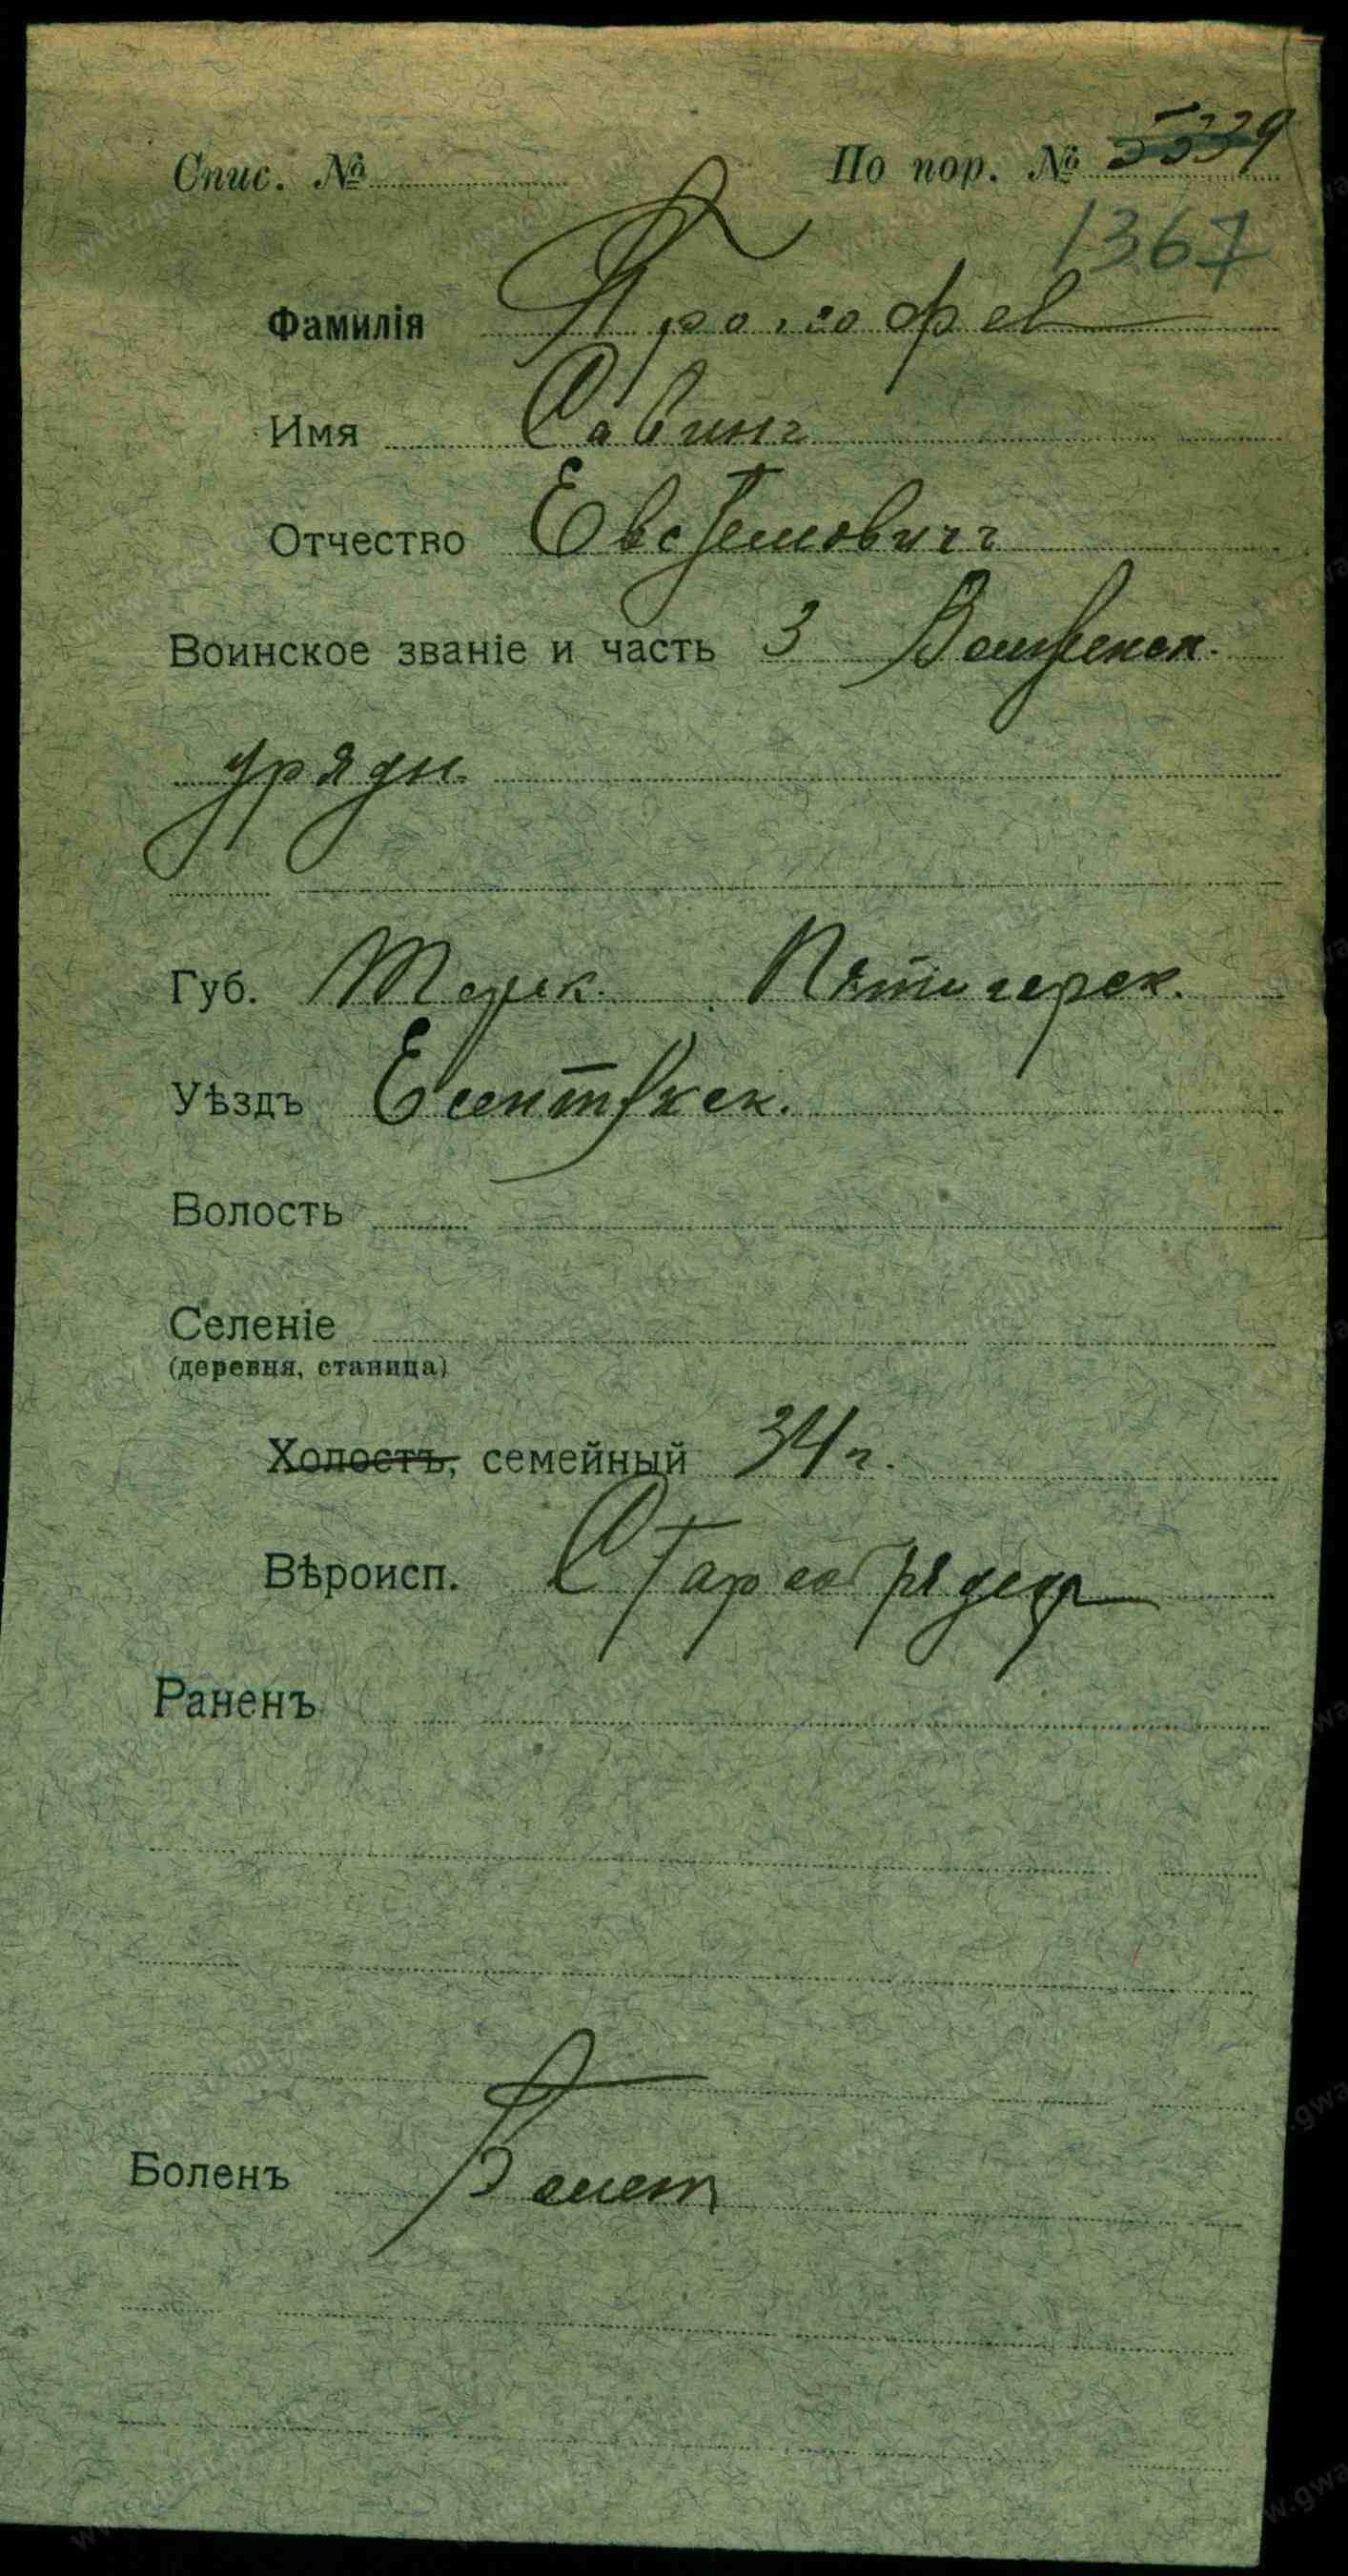 Спис. №
По пор. № 5339
1367
Фамилія Прокофьев
Имя Савинъ
Отчество Евстемовичъ
Воинское званіе и часть 3 Волженск.
урядн.
Губ. Терск. Пятигорск.
Уѣздъ Есентукск.
Волость
Селеніе
(деревня, станица)
Холостъ, семейный 34 г.
Вѣроисп. Старообрядецъ
Раненъ
Боленъ